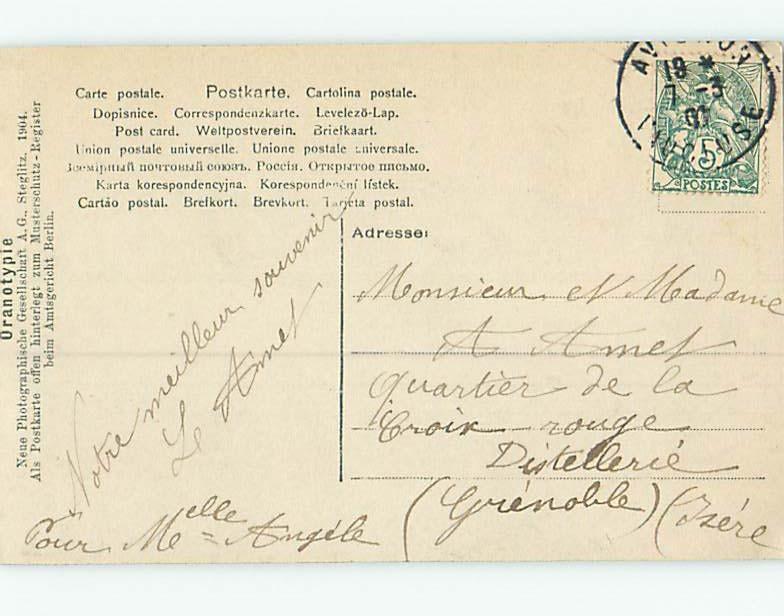 Carte postale. Postkarte. Cartolina postale.
Dopisnice. Correspondenzkarte. Levelező-Lap.
Post card. Weltpostverein. Briefkaart.
Union postale universelle. Unione postale universale.
Всемірный почтовый союзъ. Россія. Открытое письмо.
Karta korespondencyjna. Korespondenční lístek.
Cartão postal. Brefkort. Brevkort. Tarjeta postal.
AVIGNON
19 *
7 -3
VAUCLUSE
5
POSTES
Adresse:
Monsieur et Madame
A Amet
quartier de la
Croix rouge
Distellerié
(Grénoble) (Isére
Notre meilleur souvenir
L Amet
Pour Melle = Angéle
Oranotypie
Neue Photographische Gesellschaft A.G., Steglitz. 1904.
Als Postkarte offen hinterlegt zum Musterschutz-Register
beim Amtsgericht Berlin.